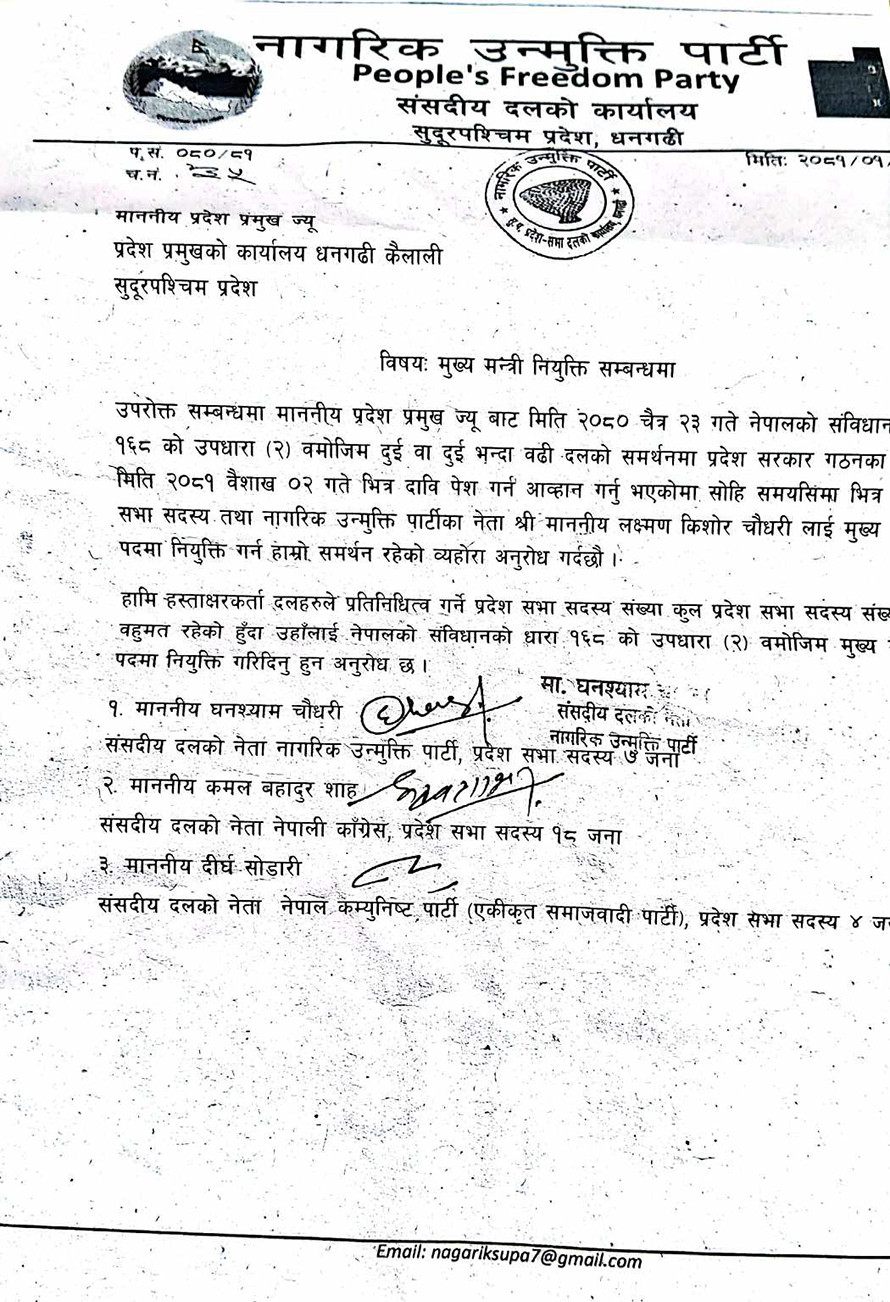 नागरिक उन्मुक्ति पार्टी
People's Freedom Party
संसदीय दलको कार्यालय
सुदूरपश्चिम प्रदेश, धनगढी
प.सं. ०८०/८१
च.नं.
मितिः २०८१/०१/
नागरिक उन्मुक्ति पार्टी
माननीय प्रदेश प्रमुख ज्यू
प्रदेश प्रमुखको कार्यालय धनगढी कैलाली
सुदूरपश्चिम प्रदेश
विषयः मुख्य मन्त्री नियुक्ति सम्बन्धमा
उपरोक्त सम्बन्धमा माननीय प्रदेश प्रमुख ज्यू बाट मिति २०८० चैत्र २३ गते नेपालको संविधान
१६८ को उपधारा (२) वमोजिम दुई वा दुई भन्दा वढी दलको समर्थनमा प्रदेश सरकार गठनका
मिति २०८१ वैशाख ०२ गते भित्र दावि पेश गर्न आव्हान गर्नु भएकोमा सोहि समयसिमा भित्र
सभा सदस्य तथा नागरिक उन्मुक्ति पार्टीका नेता श्री माननीय लक्ष्मण किशोर चौधरी लाई मुख्य
पदमा नियुक्ति गर्न हाम्रो समर्थन रहेको व्यहोरा अनुरोध गर्दछौ ।
हामि हस्ताक्षरकर्ता दलहरुले प्रतिनिधित्व गर्ने प्रदेश सभा सदस्य संख्या कुल प्रदेश सभा सदस्य
वहुमत रहेको हुँदा उहाँलाई नेपालको संविधानको धारा १६८ को उपधारा (२) वमोजिम मुख्य
पदमा नियुक्ति गरिदिनु हुन अनुरोध छ ।
मा. घनश्याम
संसदीय दलको नेता
नागरिक उन्मुक्ति पार्टी
१. माननीय घनश्याम चौधरी
संसदीय दलको नेता नागरिक उन्मुक्ति पार्टी, प्रदेश सभा सदस्य ७ जना
२. माननीय कमल बहादुर शाह
संसदीय दलको नेता नेपाली काँग्रेस, प्रदेश सभा सदस्य १८ जना
३. माननीय दीर्घ सोडारी
संसदीय दलको नेता नेपाल कम्युनिष्ट पार्टी (एकीकृत समाजवादी पार्टी), प्रदेश सभा सदस्य ४
Email: nagariksupa7@gmail.com